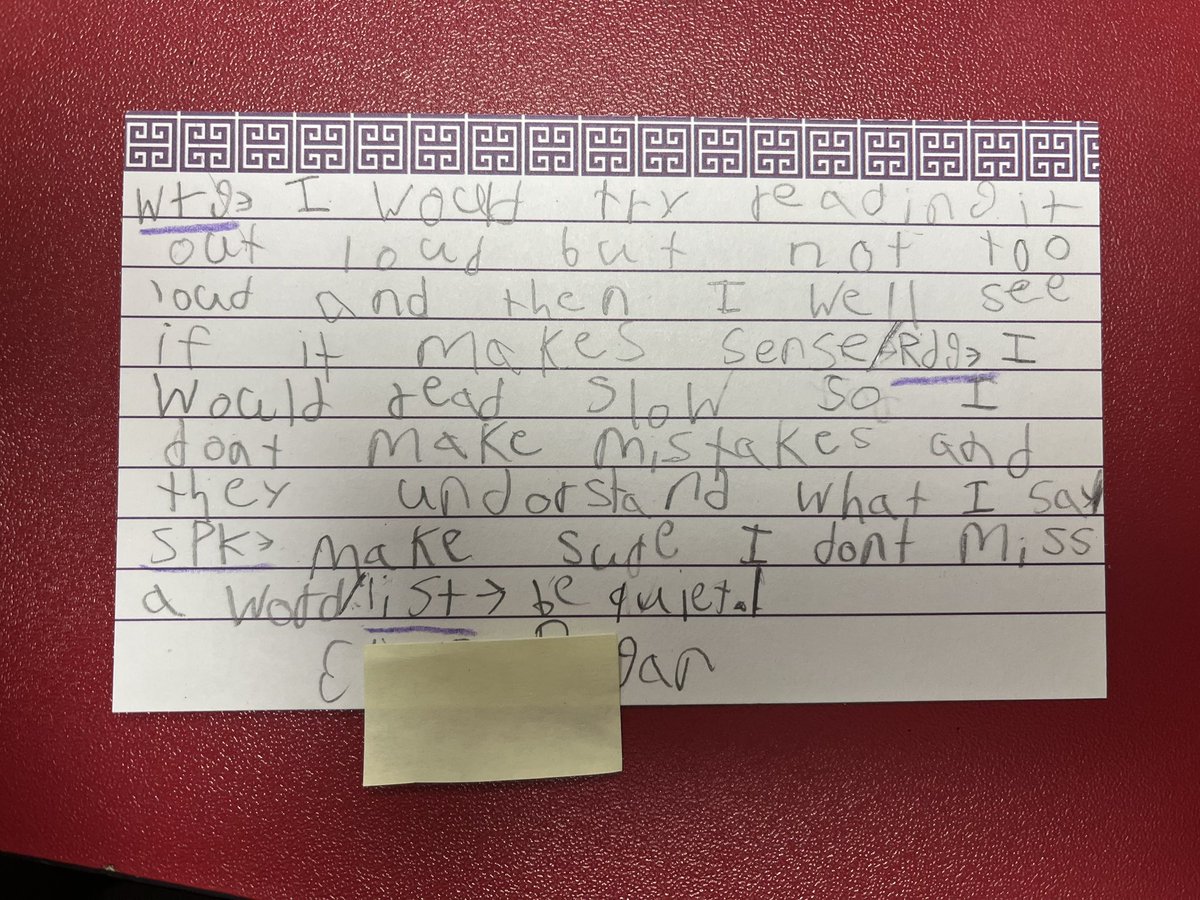 Wtg→ I would try reading it
out loud but not too
loud and then I well see
if it makes sense/Rdg→ I
would read slow so I
dont make mistakes and
they understand what I say
SPK→ make sure I dont miss
a word/list→ be quiet.